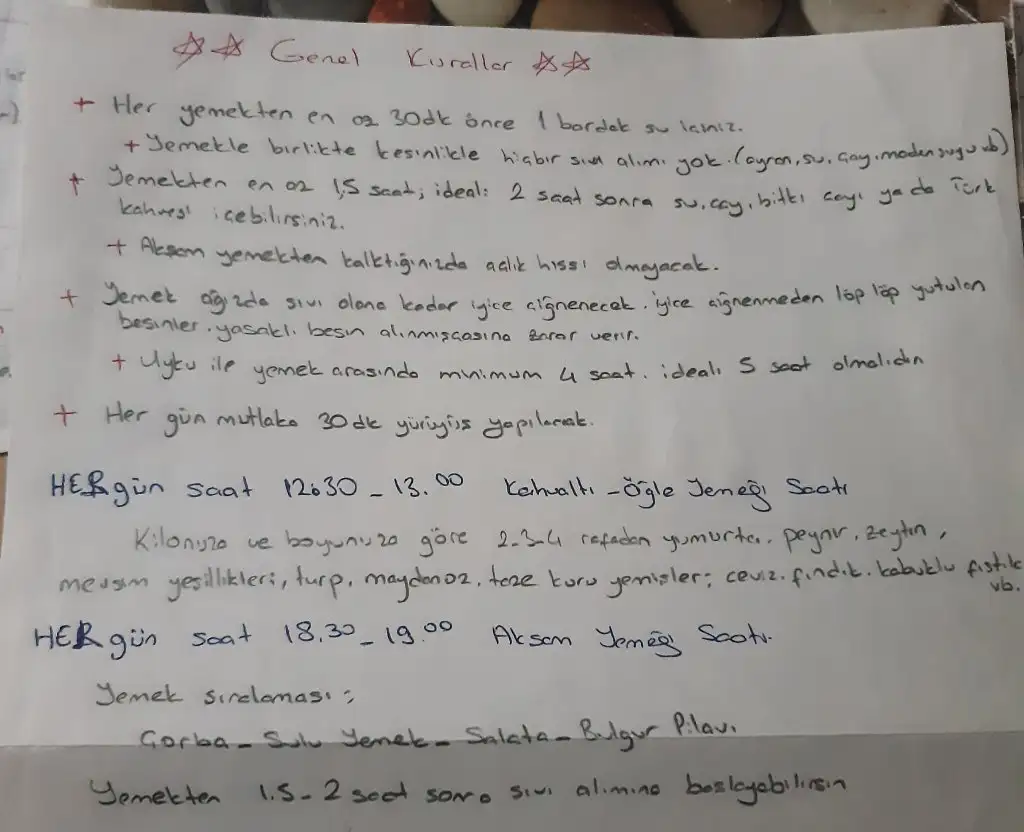 Genel Kurallar
+ Her yemekten en az 30dk önce 1 bardak su içiniz.
+ Yemekle birlikte kesinlikle hiçbir sıvı alımı yok. (ayran, su, çay, maden suyu vb)
+ Yemekten en az 1,5 saat; ideali 2 saat sonra su, çay, bitki çayı ya da Türk
kahvesi içebilirsiniz.
+ Akşam yemekten kalktığınızda açlık hissi olmayacak.
+ Yemek ağızda sıvı olana kadar iyice çiğnenecek. iyice çiğnenmeden löp löp yutulan
besinler, yasaklı besin alınmışçasına zarar verir.
+ Uyku ile yemek arasında minimum 4 saat, ideali 5 saat olmalıdır
+ Her gün mutlaka 30 dk yürüyüş yapılacak.
HER gün saat 12.30 - 13.00 Kahvaltı - Öğle Yemeği Saati
Kilonuza ve boyunuza göre 2-3-4 rafadan yumurta, peynir, zeytin,
mevsim yeşillikleri, turp, maydanoz, taze kuru yemişler; ceviz, fındık, kabuklu fıstık
vb.
HER gün saat 18.30 - 19.00 Akşam Yemeği Saati.
Yemek sıralaması;
Çorba - Sulu Yemek - Salata - Bulgur Pilavı
Yemekten 1.5 - 2 saat sonra sıvı alımına başlayabilirsin